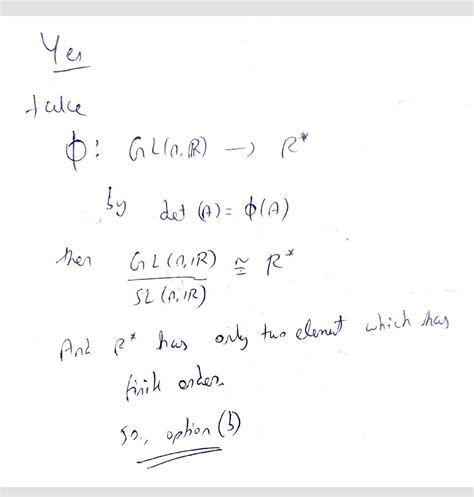 Yes
take
ϕ: GL(n,IR) → R*
by det (A) = ϕ(A)
then GL(n,IR) / SL(n,IR) ≅ R*
And R* has only two element which has
finite order.
so., option (b)